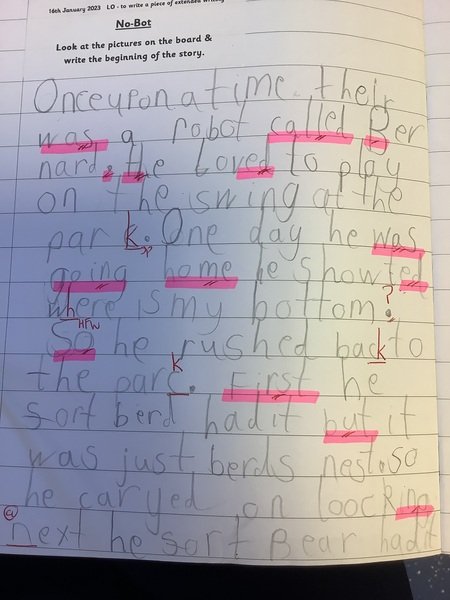 16th January 2023 LO - to write a piece of extended writing
No-Bot
Look at the pictures on the board &
write the beginning of the story.
Once upon a time. their
was a robot called Ber
nard. the Loved to play
on the swing at the
park. One day he was
going home he showted
where is my bottom?
HFW
So he rushed back to
k
the parc. First he
sort berd had it but it
was just berds nest. so
he caryed on loocking
@
next he sort Bear had it